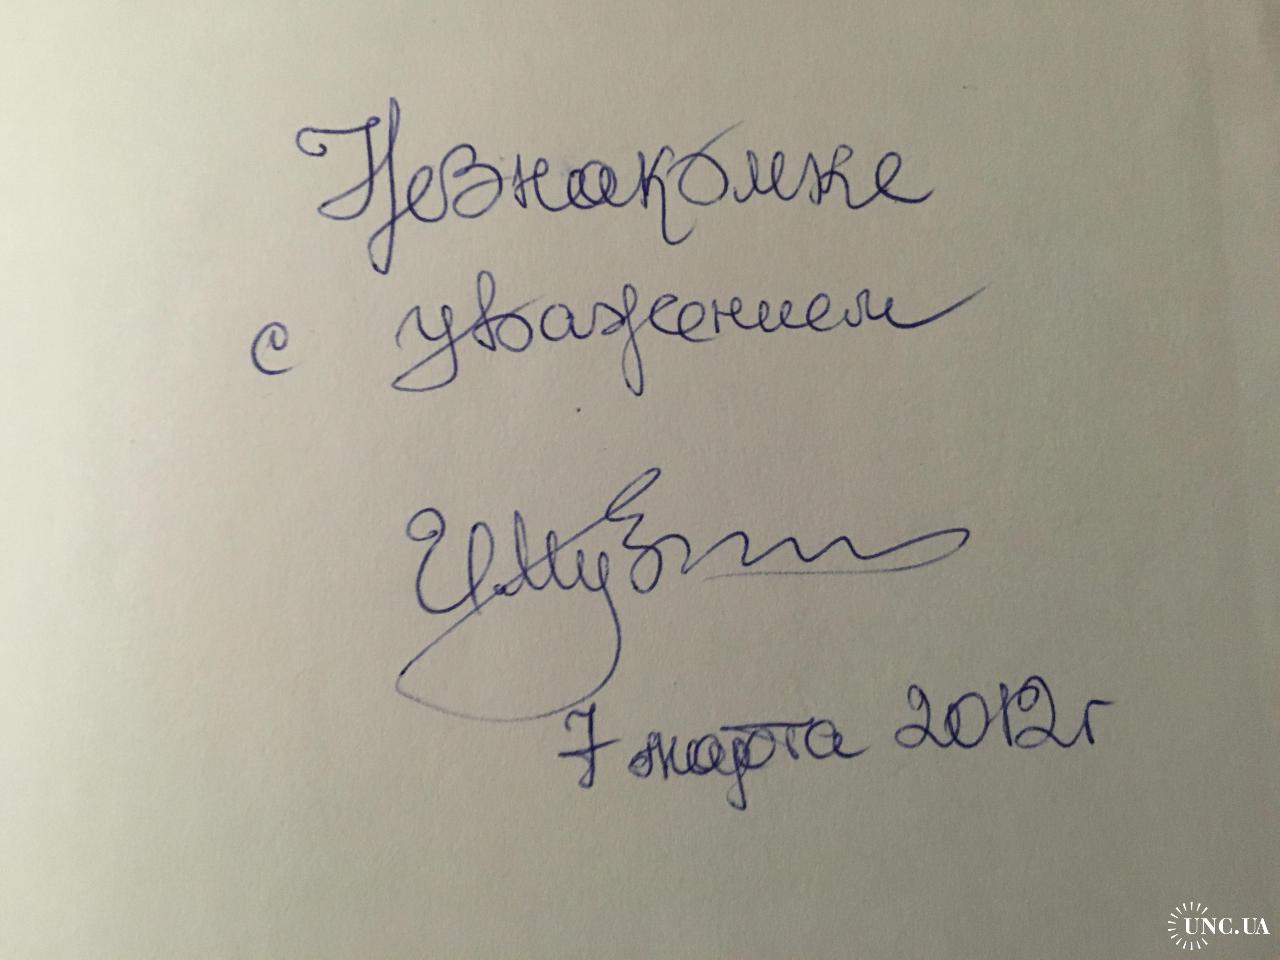 Незнакомке
с уважением
7 марта 2012 г
UNC.UA